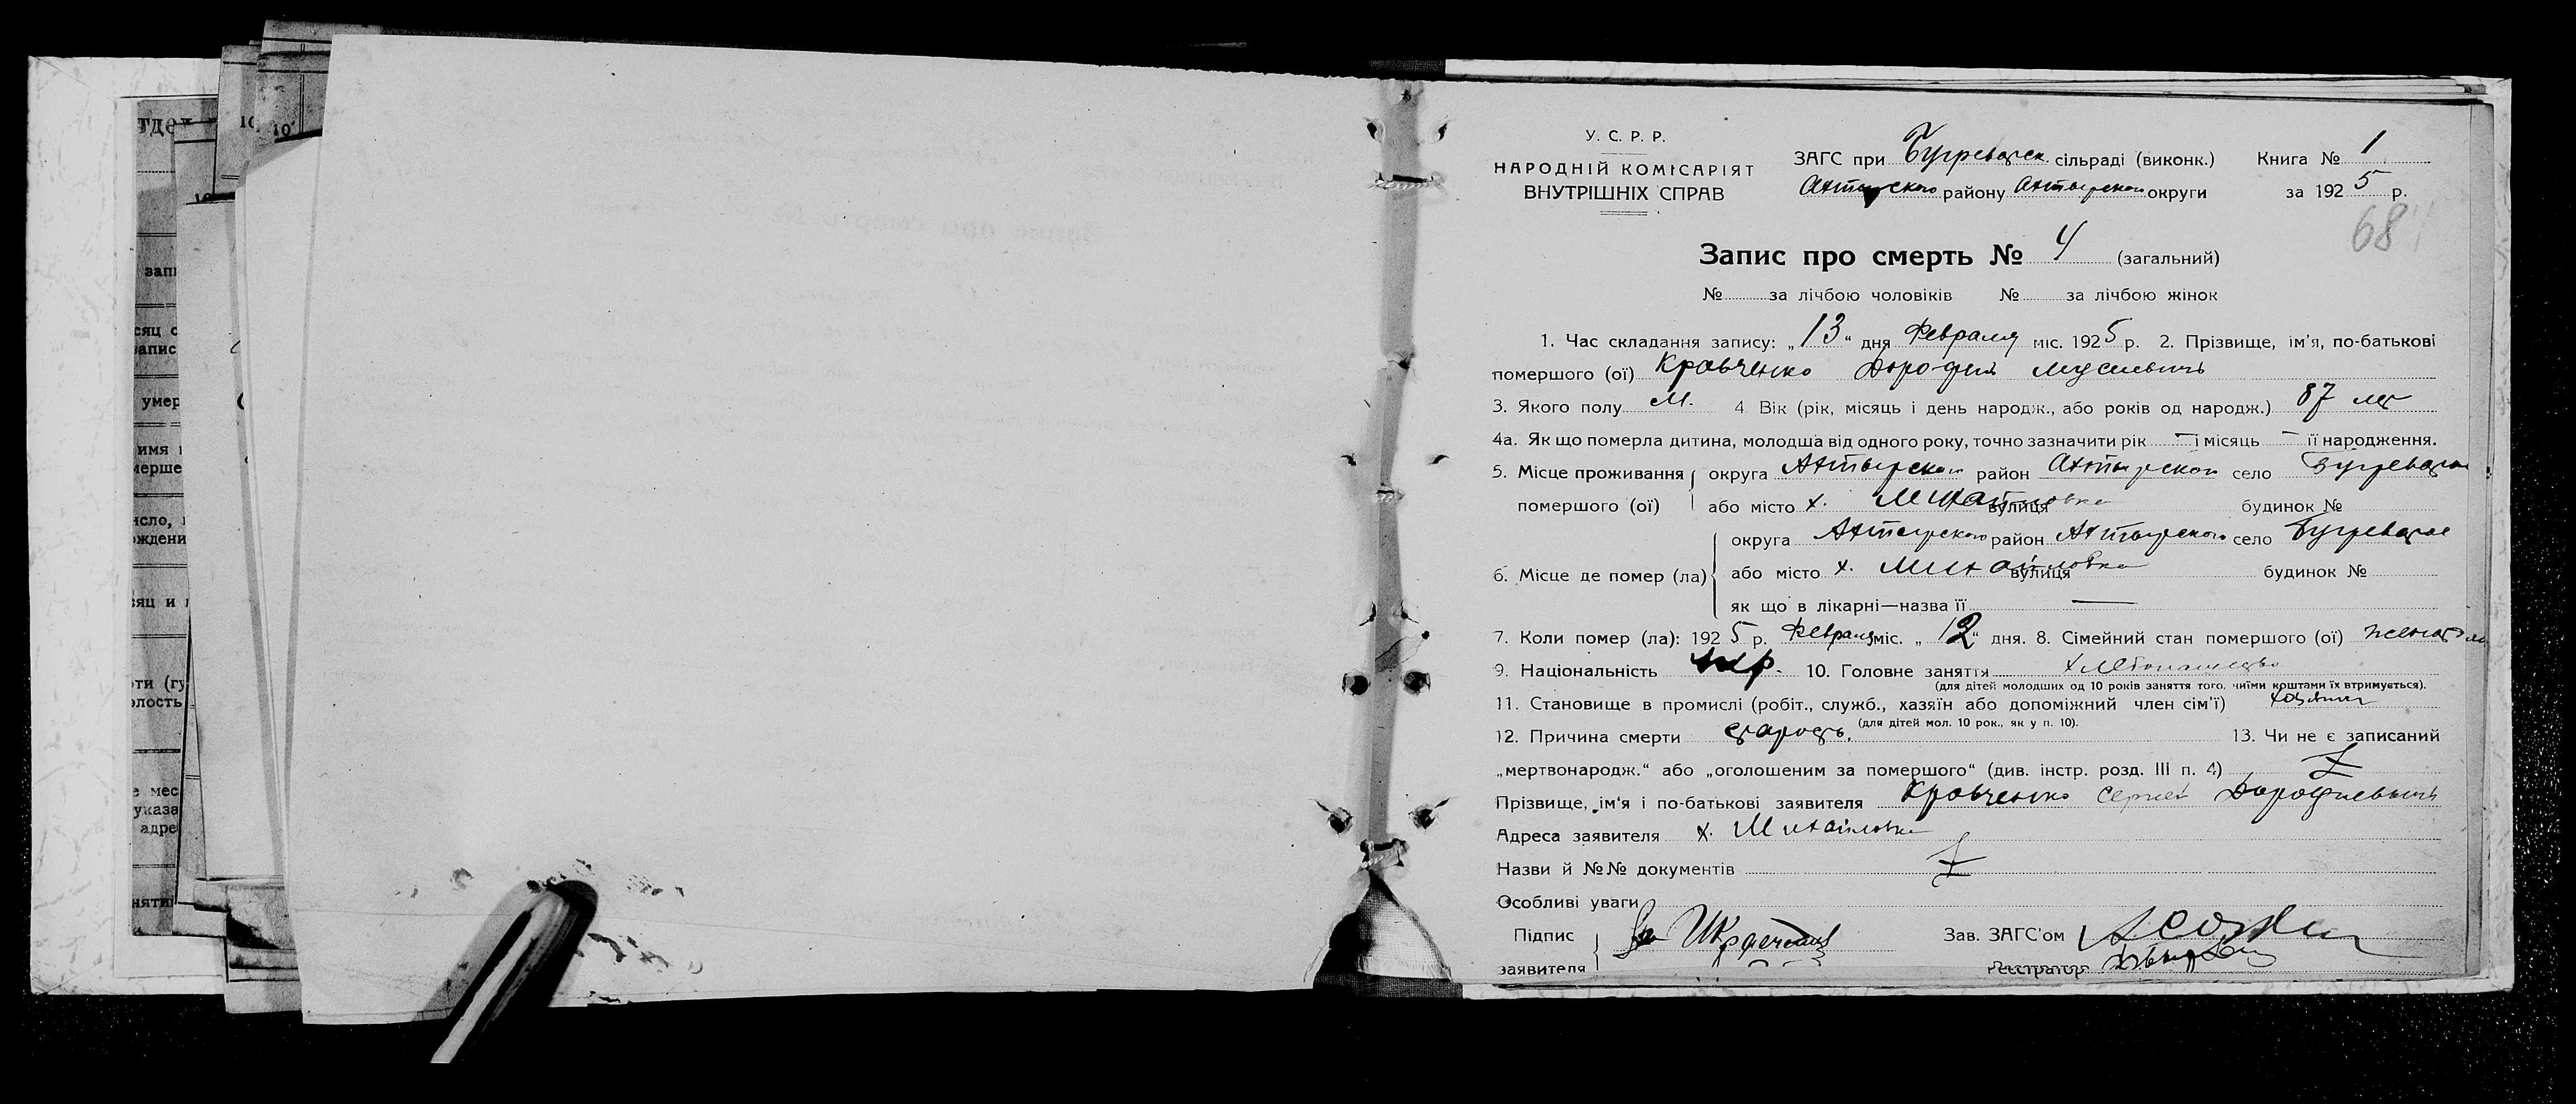 У. С. Р. Р.
НАРОДНІЙ КОМІСАРІЯТ
ВНУТРІШНІХ СПРАВ
ЗАГС при Бугреватск. сільраді (виконк.) Книга № 1
Ахтырского району Ахтырской округи за 1925 р.
68
Запис про смерть № 4 (загальний)
№ за лічбою чоловіків № за лічбою жінок
1. Час складання запису: „13“ дня Февраля міс. 1925 р. 2. Прізвище, ім'я, по-батькові
помершого (ої) Кравченко Дорофей Мусиевичь
3. Якого полу М. 4. Вік (рік, місяць і день народж., або років од народж.) 87 лет
4а. Як що померла дитина, молодша від одного року, точно зазначити рік — і місяць — її народження.
5. Місце проживання округа Ахтырской район Ахтырской село Бугреватое
помершого (ої) або місто х. Михайловка вулиця будинок №
округа Ахтырского район Ахтырского село Бугреватое
6. Місце де помер (ла) або місто х. Михайловка вулиця будинок №
як що в лікарні—назва її —
7. Коли помер (ла): 1925 р. Февраля міс. „12“ дня. 8. Сімейний стан помершого (ої) женат
9. Національність укр. 10. Головне заняття хлебопашество
(для дітей молодших од 10 років заняття того, чиїми коштами їх втримується).
11. Становище в промислі (робіт., служб., хазяїн або допоміжний член сім'ї) хозяин
(для дітей мол. 10 рок., як у п. 10).
12. Причина смерти старость. 13. Чи не є записаний
„мертвонародж.“ або „оголошеним за помершого“ (див. інстр. розд. III п. 4)
Прізвище, ім'я і по-батькові заявителя Кравченко Сергей Дорофиевичь
Адреса заявителя х. Михайловка
Назви й №№ документів
Особливі уваги
Підпис
заявителя
Зав. ЗАГС'ом
Реєстратор